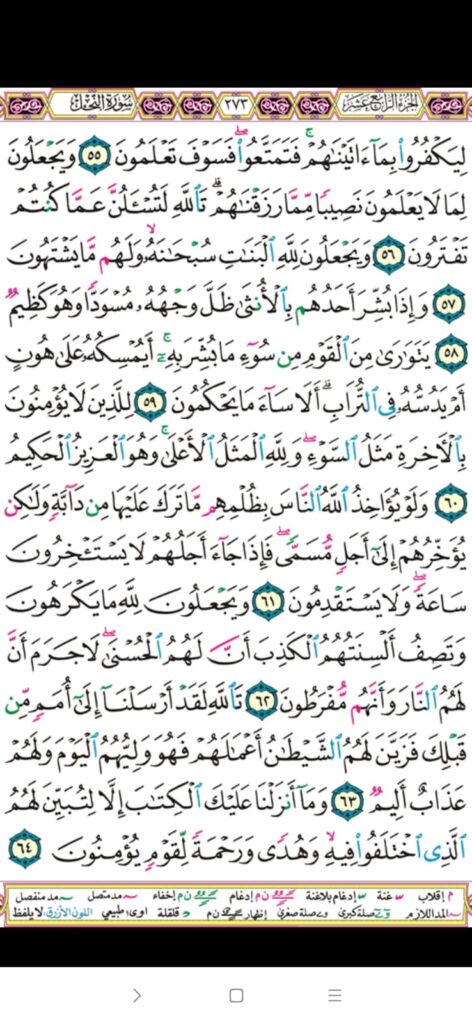 الجزء الرابع عشر ٢٧٣ سورة النحل
لِيَكْفُرُوا۟ بِمَآ ءَاتَيْنَٰهُمْ ۚ فَتَمَتَّعُوا۟ ۖ فَسَوْفَ تَعْلَمُونَ ٥٥ وَيَجْعَلُونَ
لِمَا لَا يَعْلَمُونَ نَصِيبًا مِّمَّا رَزَقْنَٰهُمْ ۗ تَٱللَّهِ لَتُسْـَٔلُنَّ عَمَّا كُنتُمْ
تَفْتَرُونَ ٥٦ وَيَجْعَلُونَ لِلَّهِ ٱلْبَنَٰتِ سُبْحَٰنَهُۥ ۙ وَلَهُم مَّا يَشْتَهُونَ
٥٧ وَإِذَا بُشِّرَ أَحَدُهُم بِٱلْأُنثَىٰ ظَلَّ وَجْهُهُۥ مُسْوَدًّا وَهُوَ كَظِيمٌ
٥٨ يَتَوَٰرَىٰ مِنَ ٱلْقَوْمِ مِن سُوٓءِ مَا بُشِّرَ بِهِۦٓ ۚ أَيُمْسِكُهُۥ عَلَىٰ هُونٍ
أَمْ يَدُسُّهُۥ فِى ٱلتُّرَابِ ۗ أَلَا سَآءَ مَا يَحْكُمُونَ ٥٩ لِلَّذِينَ لَا يُؤْمِنُونَ
بِٱلْءَاخِرَةِ مَثَلُ ٱلسَّوْءِ ۖ وَلِلَّهِ ٱلْمَثَلُ ٱلْأَعْلَىٰ ۚ وَهُوَ ٱلْعَزِيزُ ٱلْحَكِيمُ
٦٠ وَلَوْ يُؤَاخِذُ ٱللَّهُ ٱلنَّاسَ بِظُلْمِهِم مَّا تَرَكَ عَلَيْهَا مِن دَآبَّةٍ وَلَٰكِن
يُؤَخِّرُهُمْ إِلَىٰٓ أَجَلٍ مُّسَمًّى ۖ فَإِذَا جَآءَ أَجَلُهُمْ لَا يَسْتَـْٔخِرُونَ
سَاعَةً ۖ وَلَا يَسْتَقْدِمُونَ ٦١ وَيَجْعَلُونَ لِلَّهِ مَا يَكْرَهُونَ
وَتَصِفُ أَلْسِنَتُهُمُ ٱلْكَذِبَ أَنَّ لَهُمُ ٱلْحُسْنَىٰ ۖ لَا جَرَمَ أَنَّ
لَهُمُ ٱلنَّارَ وَأَنَّهُم مُّفْرَطُونَ ٦٢ تَٱللَّهِ لَقَدْ أَرْسَلْنَآ إِلَىٰٓ أُمَمٍ مِّن
قَبْلِكَ فَزَيَّنَ لَهُمُ ٱلشَّيْطَٰنُ أَعْمَٰلَهُمْ فَهُوَ وَلِيُّهُمُ ٱلْيَوْمَ وَلَهُمْ
عَذَابٌ أَلِيمٌ ٦٣ وَمَآ أَنزَلْنَا عَلَيْكَ ٱلْكِتَٰبَ إِلَّا لِتُبَيِّنَ لَهُمُ
ٱلَّذِى ٱخْتَلَفُوا۟ فِيهِ ۙ وَهُدًى وَرَحْمَةً لِّقَوْمٍ يُؤْمِنُونَ ٦٤
م إقلاب غنة إدغام بلاغنة ن م إدغام ن م إخفاء مد متصل مد منفصل
المد اللازم صلة كبرى صلة صغرى إظهار ن م قلقلة اوى طبيعي اللون الأزرق: لا يلفظ